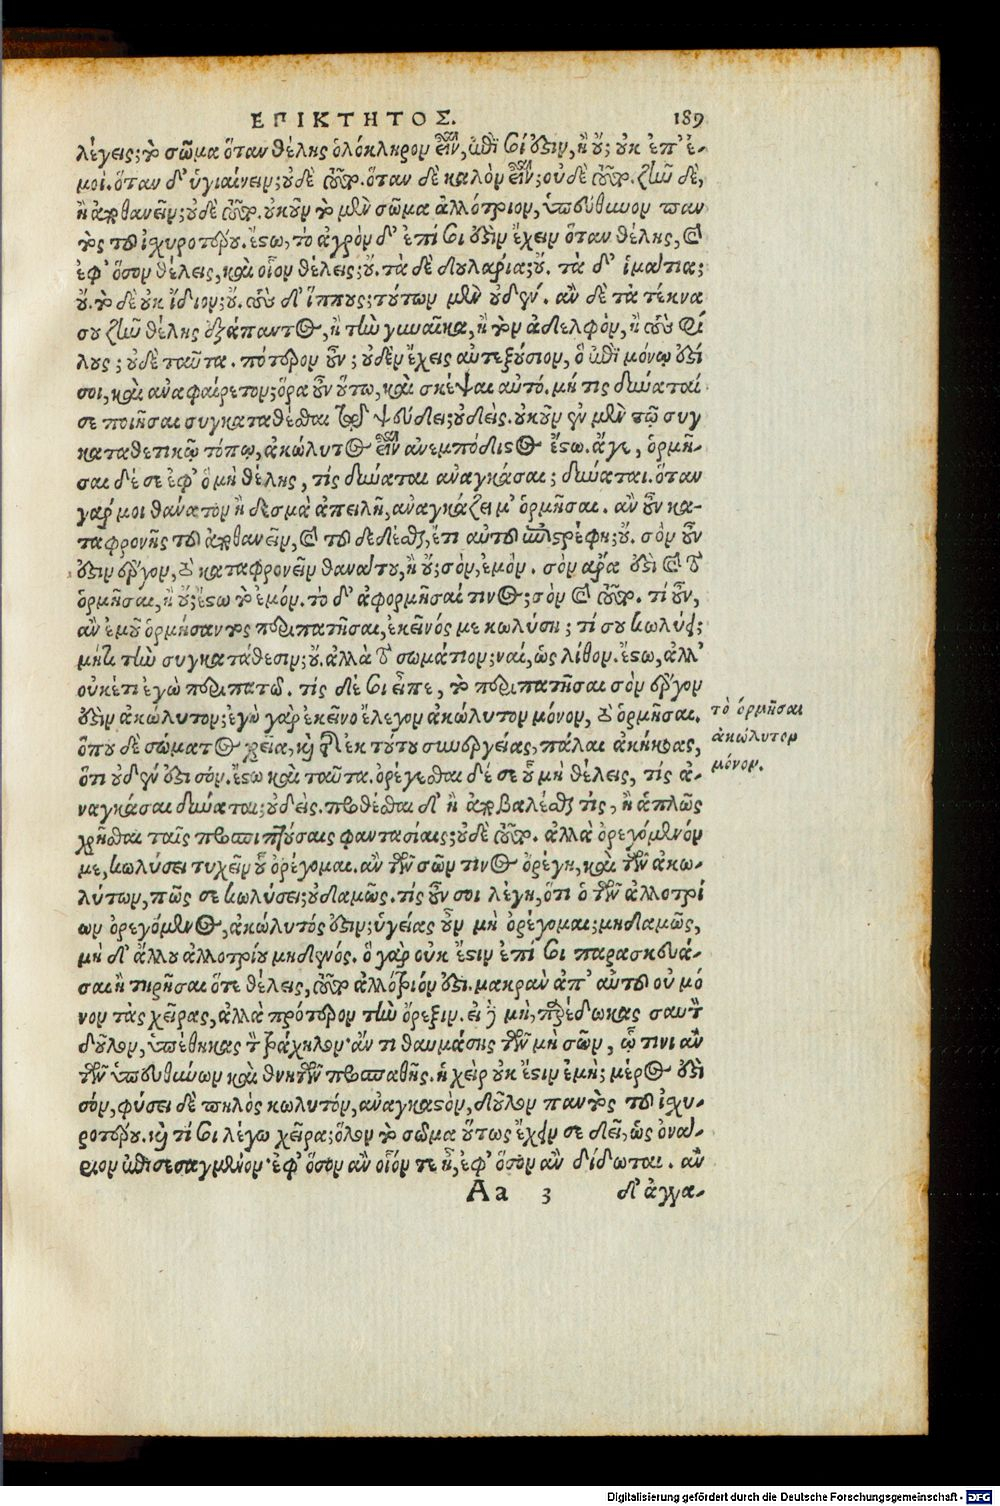 ΕΠΙΚΤΗΤΟΣ. 189
λέγεις; τὸ σῶμα ὅταν θέλης ὁλόκληρον εἶναι, ἐπὶ σοί ἐστιν, ἢ οὔ; οὐκ ἐπ' ἐ-
μοί. ὅταν δ' ὑγιαίνειν; οὐδὲ τοῦτο. ὅταν δὲ καλὸν εἶναι; οὐδὲ τοῦτο. ζῆν δὲ,
ἢ ἀποθανεῖν; οὐδὲ τοῦτο. οὐκοῦν τὸ μὲν σῶμα ἀλλότριον, ὑπεύθυνον παν
τὸς τοῦ ἰσχυροτέρου. ἔστω, τὸ ἀγρὸν δ' ἐπί σοι ἐστὶν ἔχειν ὅταν θέλης, καὶ
ἐφ' ὅσον θέλεις, καὶ οἷον θέλεις; οὔ. τὰ δὲ δουλάρια; οὔ. τὰ δ' ἱμάτια;
οὔ. τὸ δὲ οὐκ ἴδιον; οὔ. τοὺς δ' ἵππους; τούτων μὲν οὐδέν. ἂν δὲ τὰ τέκνα
σου ζῆν θέλης ἐξάπαντος, ἢ τὴν γυναῖκα, ἢ τὸν ἀδελφὸν, ἢ τοὺς φί
λους; οὐδὲ ταῦτα. πότερον οὖν; οὐδὲν ἔχεις αὐτεξούσιον, ὃ ἐπὶ μόνῳ ἐστί
σοι, καὶ ἀναφαίρετον; ὅρα οὖν οὕτω, καὶ σκέψαι αὐτό. μή τις δύναταί
σε ποιῆσαι συγκαταθέσθαι τῷ ψεύδει; οὐδείς. οὐκοῦν ἐν μὲν τῷ συγ
καταθετικῷ τόπῳ, ἀκώλυτος εἶναι ἀνεμπόδιστος ἔστω. ἄγε, ὁρμῆ-
σαι δέ σε ἐφ' ὃ μὴ θέλης, τίς δύναται ἀναγκάσαι; δύναται. ὅταν
γάρ μοι θάνατον ἢ δεσμὰ ἀπειλῆ, ἀναγκάζει μ' ὁρμῆσαι. ἂν οὖν κα-
ταφρονῆς τοῦ ἀποθανεῖν, καὶ τοῦ δεδέσθαι, ἔτι αὐτοῦ ἐπιστρέφη; οὔ. σὸν οὖν
ἐστιν ἔργον, τὸ καταφρονεῖν θανάτου, ἢ οὔ; σὸν, ἐμόν. σὸν ἄρα ἐστὶ καὶ τὸ
ὁρμῆσαι, ἢ οὔ; ἔστω τὸ ἐμόν. τὸ δ' ἀφορμῆσαί τινος; σὸν καὶ τοῦτο. τί οὖν,
ἂν ἐμοῦ ὁρμήσαντος περιπατῆσαι, ἐκεῖνός με κωλύση; τί σου κωλύσει;
μήτι τὴν συγκατάθεσιν; οὔ. ἀλλὰ τὸ σωμάτιον; ναί, ὡς λίθον. ἔστω, ἀλλ'
οὐκέτι ἐγὼ περιπατῶ. τίς δέ σοι εἶπε, τὸ περιπατῆσαι σὸν ἔργον
ἐστὶν ἀκώλυτον; ἐγὼ γὰρ ἐκεῖνο ἔλεγον ἀκώλυτον μόνον, τὸ ὁρμῆσαι.
ὅπου δὲ σώματος χρεία, καὶ τῆς ἐκ τούτου συνεργείας, πάλαι ἀκήκοας,
ὅτι οὐδέν ἐστι σόν. ἔστω καὶ ταῦτα. ὀρέγεσθαι δέ σε οὗ μὴ θέλεις, τίς ἀ-
ναγκάσαι δύναται; οὐδείς. προθέσθαι δ' ἢ ἀποβαλέσθαι τίς, ἢ ἁπλῶς
χρῆσθαι ταῖς προσπιπτούσαις φαντασίαις; οὐδὲ τοῦτο. ἀλλὰ ὀρεγόμενόν
με, κωλύσει τυχεῖν οὗ ὀρέγομαι. ἂν τῶν σῶν τινος ὀρέγη, καὶ τῶν ἀκω-
λύτων, πῶς σε κωλύσει; οὐδαμῶς. τίς οὖν σοι λέγη, ὅτι ὁ τῶν ἀλλοτρί
ων ὀρεγόμενος, ἀκώλυτός ἐστιν; ὑγείας οὖν μὴ ὀρέγομαι; μηδαμῶς,
μὴ δ' ἄλλου ἀλλοτρίου μηδενός. ὃ γὰρ οὐκ ἔστιν ἐπί σοι παρασκευά-
σαι ἢ τηρῆσαι ὅτε θέλεις, τοῦτο ἀλλότριόν ἐστι. μακρὰν ἀπ' αὐτοῦ οὐ μό
νον τὰς χεῖρας, ἀλλὰ πρότερον τὴν ὄρεξιν. εἰ δὲ μὴ, παρέδωκας σαυτὸν
δοῦλον, ὑπέθηκας τὸν τράχηλον· ἄν τι θαυμάσης τῶν μὴ σῶν, ᾧ τινι ἂν
τῶν ὑπευθύνων καὶ θνητῶν προσπαθῆς. ἡ χεὶρ οὐκ ἔστιν ἐμή; μέρος ἐστὶ
σόν, φύσει δὲ πηλός κωλυτόν, ἀναγκαστὸν, δοῦλον παντὸς τοῦ ἰσχυ-
ροτέρου. καὶ τί σοι λέγω χεῖρα; ὅλον τὸ σῶμα οὕτως ἔχειν σε δεῖ, ὡς ὀνά-
ριον ἐπισεσαγμένον· ἐφ' ὅσον ἂν οἷόν τε ᾖ, ἐφ' ὅσον ἂν δίδωται. ἂν
Aa 3 δ' ἀγγα-
τὸ ὁρμῆσαι
ἀκώλυτον
μόνον.
Digitalisierung gefördert durch die Deutsche Forschungsgemeinschaft - DFG